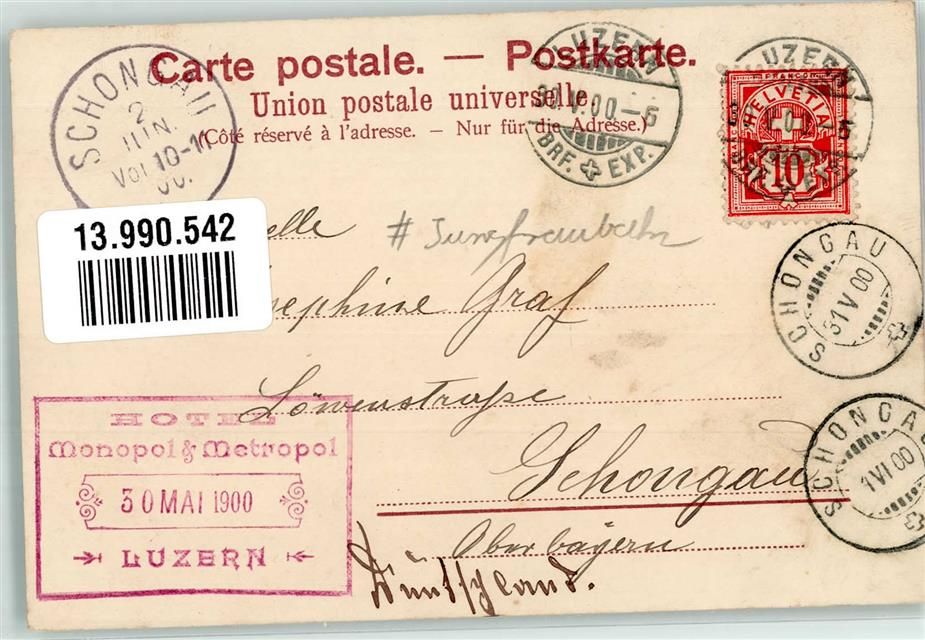 Carte postale. — Postkarte.
Union postale universelle.
(Côté réservé à l'adresse. — Nur für die Adresse.)
SCHONGAU
2
JUN.
Vor 10-11
00.
LUZERN
00-5
BRF. EXP.
LUZERN
FRANCO
HELVETIA
10
13.990.542
elle
# Jungfraubahn
sephine Graf
Löwenstraße
Schongau
Oberbayern
Deutschland.
SCHONGAU
31 V 00
SCHONGAU
1 VI 00
HOTEL
Monopol & Metropol
30 MAI 1900
LUZERN